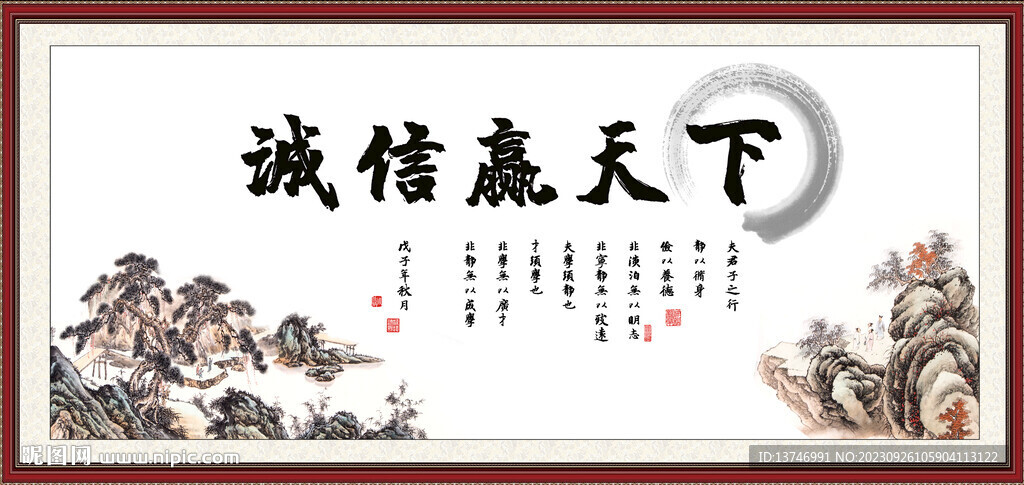 诚信赢天下
夫君子之行
静以脩身
儉以養德
非淡泊無以明志
非寧靜無以致遠
夫學須靜也
才須學也
非學無以廣才
非靜無以成學
戊子年秋月
昵图网 www.nipic.com
ID:13746991 NO:20230926105904113122